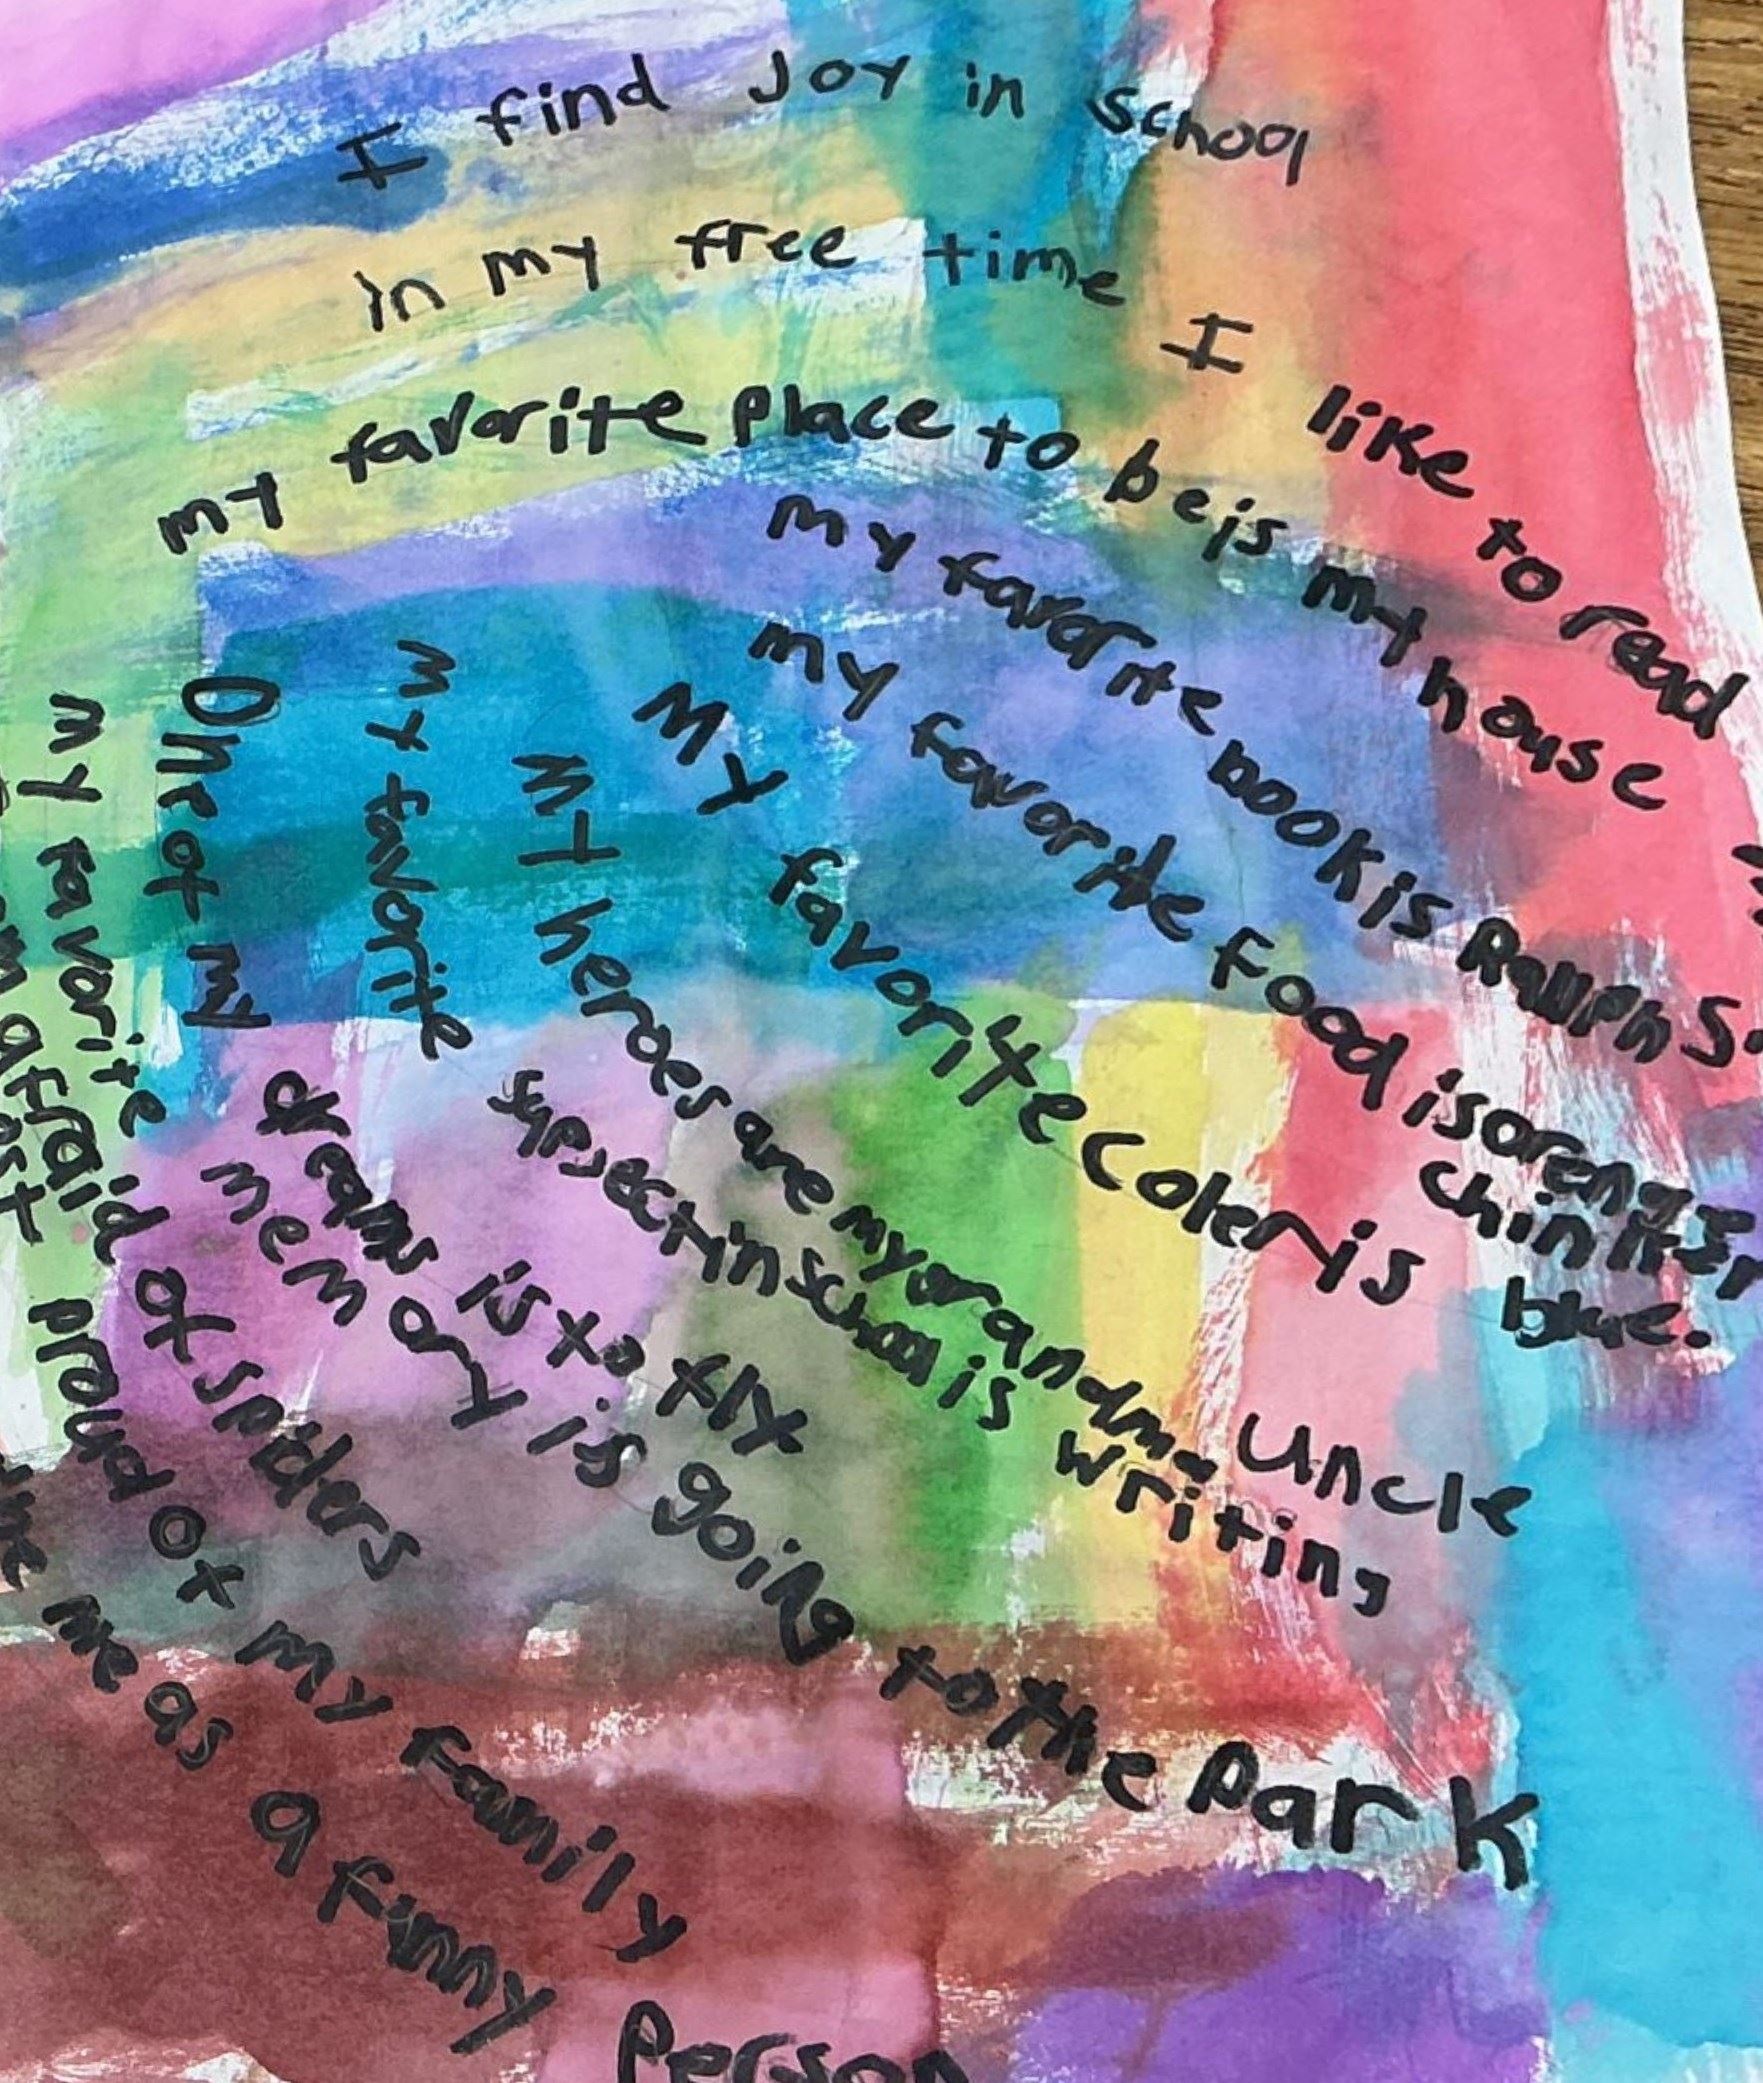 I find Joy in School
in my free time I like to read
my favorite place to be is my house
my favorite book is Rallph S.
my favorite food is oreng chinken
My favorite Coler is blue.
My heroes are my grandma Uncle
my favorite supsect in school is writing
One of my dreams is to fly
my favorite memory is going to the Park
afraid of spiders
proud of my family
me as a finny Person